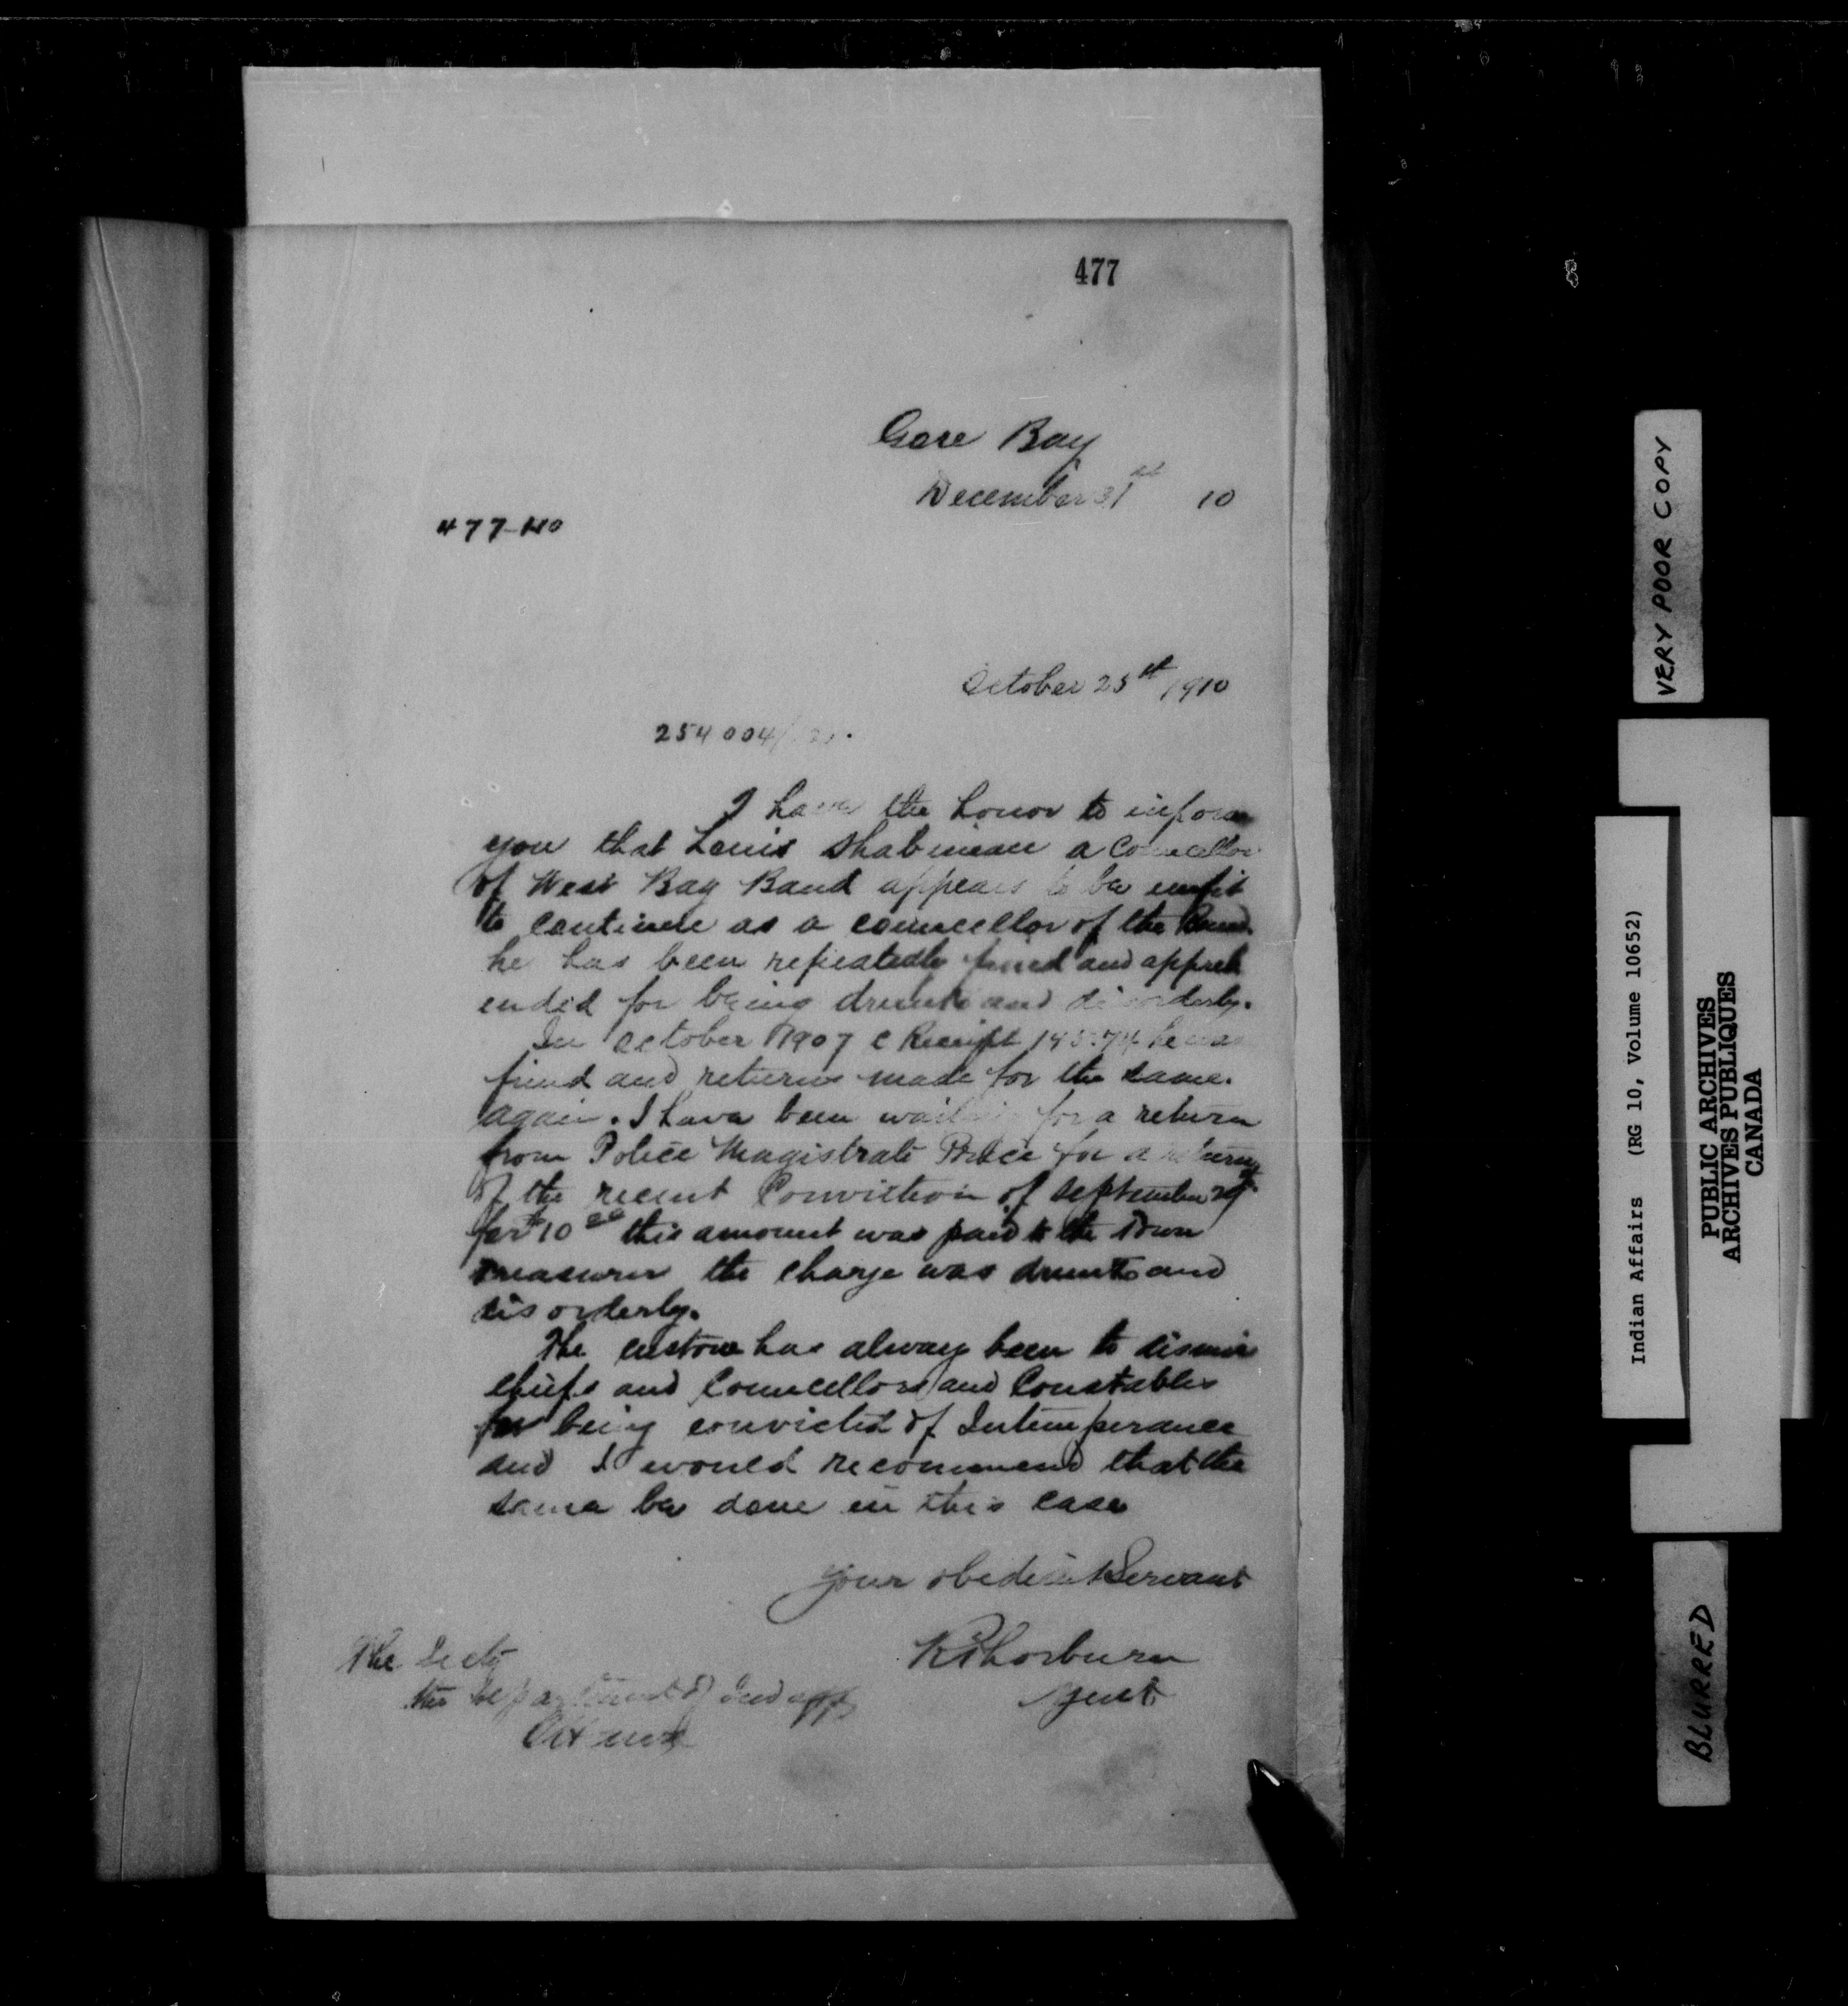 477
Gore Bay
December 31st 10
477-H0
October 25th 1910
254004/
I have the honor to inform
you that Louis Shabinean a Councellor
of West Bay Band appears to be unfit
to continue as a councellor of the Band
he has been repeatedly fined and appreh
ended for being drunk and disorderly.
In October 1907 C Receipt 145.74 he was
fined and returns made for the same.
again. I have been waiting for a return
from Police Magistrate Price for a return
of the recent Conviction of September 29
for $10 00 this amount was paid to the Town
Treasurer the charge was drunk and
disorderly.
The custom has alway been to dismiss
chiefs and Councellors and Constables
for being convicted of Intemperance
and I would recommend that the
same be done in this case
Your obedient Servant
R Thorburn
Agent
The Secty
the Department of Ind Aff
Ottawa
VERY POOR COPY
Indian Affairs (RG 10, Volume 10652)
PUBLIC ARCHIVES
ARCHIVES PUBLIQUES
CANADA
BLURRED